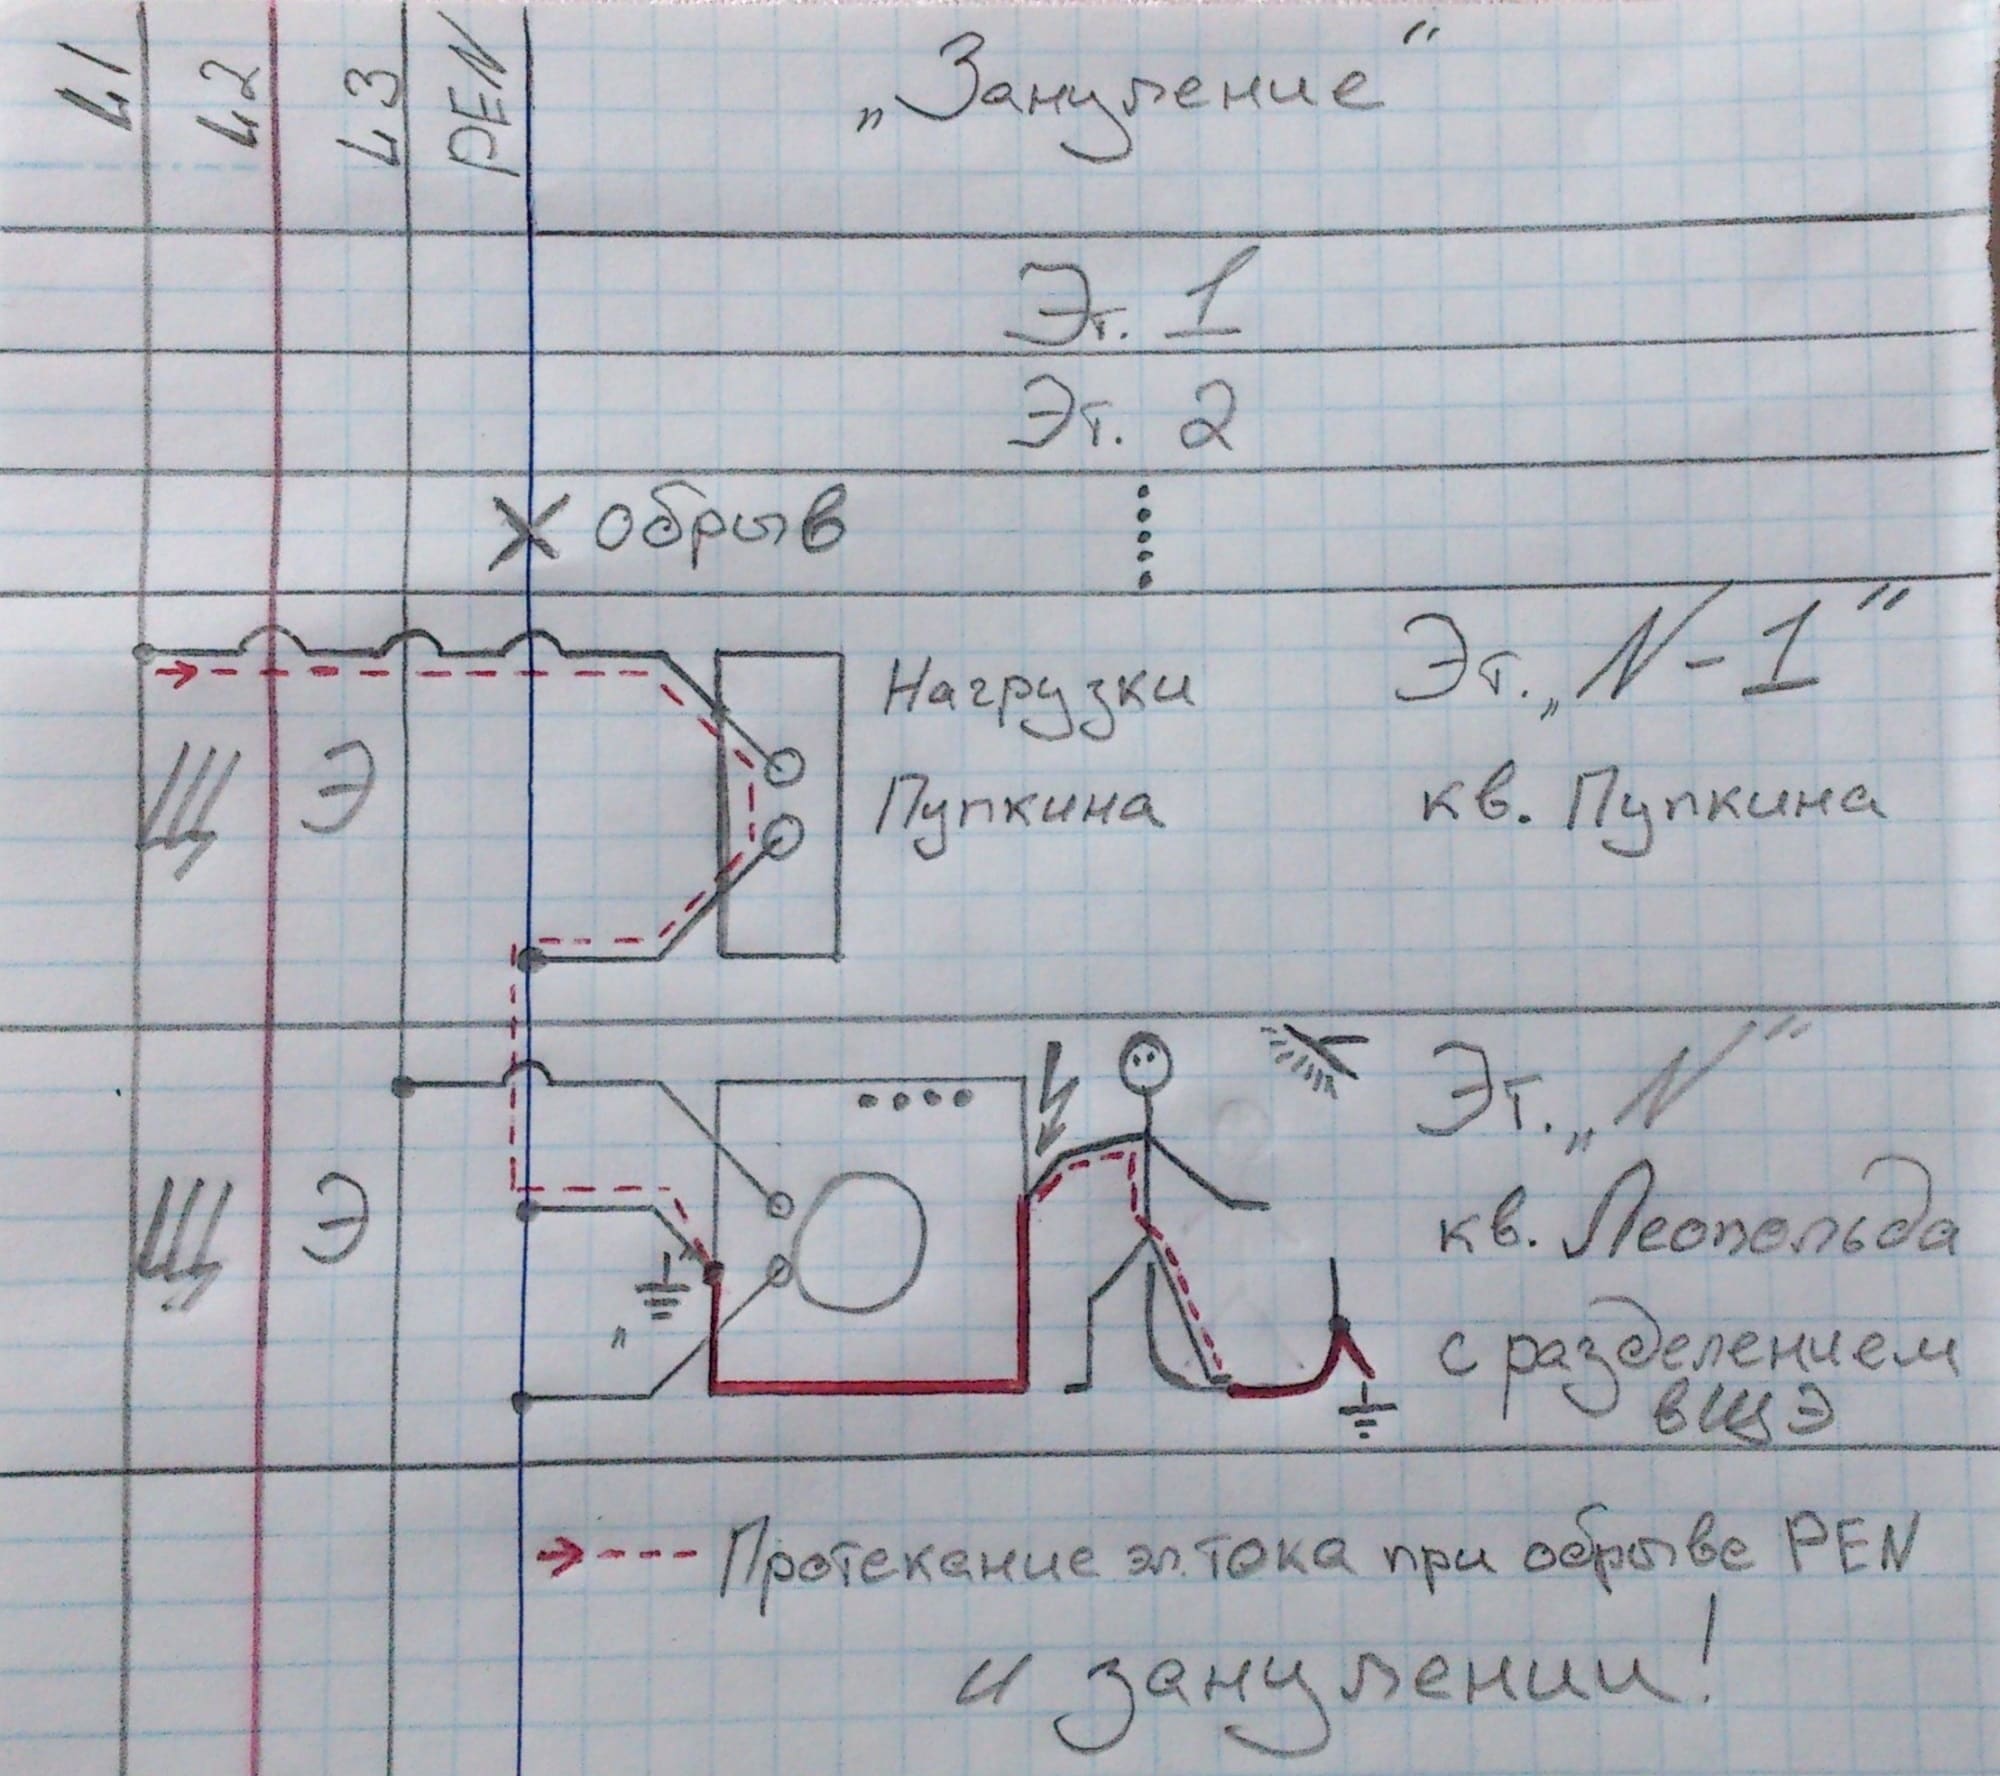 L1 L2 L3 PEN
„Зануление"
Эт. 1
Эт. 2
обрыв
Эт. „N-1"
Нагрузки
Пупкина
кв. Пупкина
Щ Э
Эт. „N"
кв. Леопольда
с разделением
в ЩЭ
Щ Э
Протекание эл. тока при обрыве PEN
и занулении!